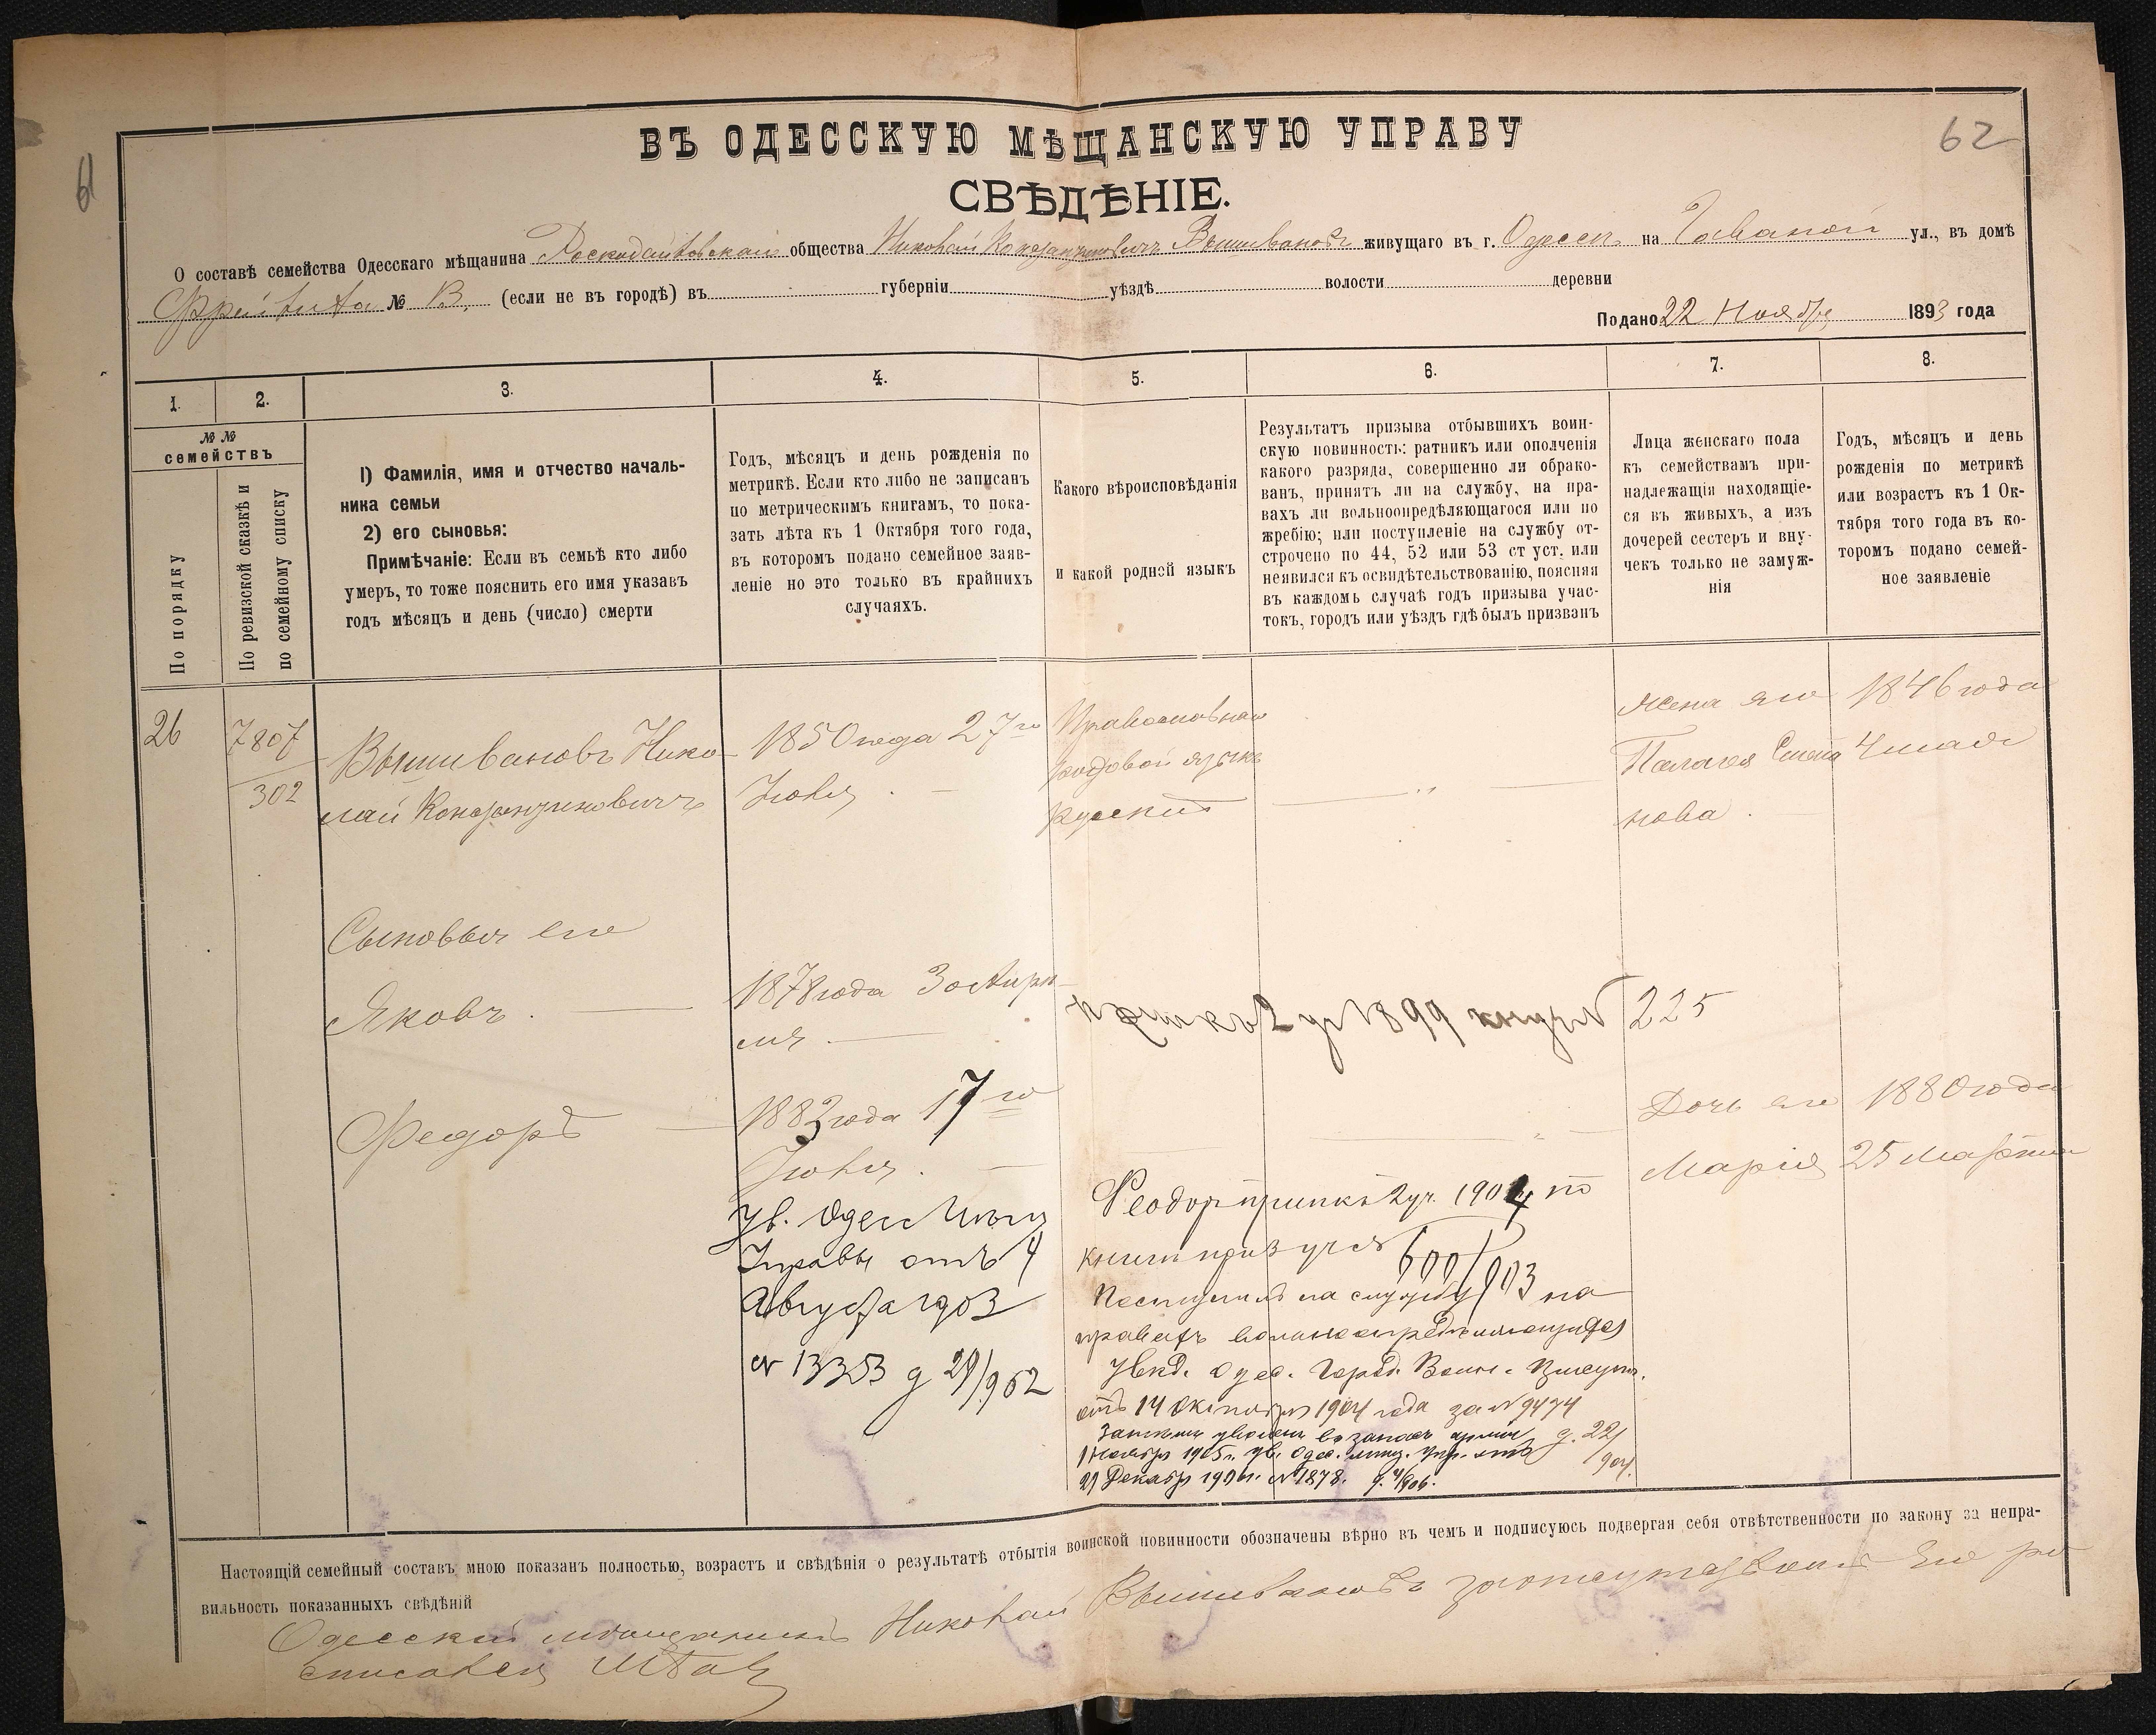 61
62
ВЪ ОДЕССКУЮ МѢЩАНСКУЮ УПРАВУ
СВѢДѢНІЕ.
О составѣ семейства Одесскаго мѣщанина общества Николай Константиновичъ Вышивановъ живущаго въ г. Одессѣ на ул., въ домѣ
№ (если не въ городѣ) въ губерніи уѣздѣ волости деревни
Подано 22 Ноября 1893 года
1. 2. 3. 4. 5. 6. 7. 8.
№№
семействъ
По порядку
По ревизской сказкѣ и
по семейному списку
1) Фамилія, имя и отчество началь-
ника семьи
2) его сыновья:
Примѣчаніе: Если въ семьѣ кто либо
умеръ, то тоже пояснить его имя указавъ
годъ мѣсяцъ и день (число) смерти
Годъ, мѣсяцъ и день рожденія по
метрикѣ. Если кто либо не записанъ
по метрическимъ книгамъ, то пока-
зать лѣта къ 1 Октября того года,
въ которомъ подано семейное заяв-
леніе но это только въ крайнихъ
случаяхъ.
Какого вѣроисповѣданія
и какой родной языкъ
Результатъ призыва отбывшихъ воин-
скую повинность: ратникъ или ополченія
какого разряда, совершенно ли обрако-
ванъ, принятъ ли на службу, на пра-
вахъ ли вольноопредѣляющагося или по
жребію; или поступленіе на службу от-
строчено по 44, 52 или 53 ст уст. или
неявился къ освидѣтельствованію, поясняя
въ каждомъ случаѣ годъ призыва учас-
токъ, городъ или уѣздъ гдѣ былъ призванъ
Лица женскаго пола
къ семействамъ при-
надлежащія находящіе-
ся въ живыхъ, а изъ
дочерей сестеръ и вну-
чекъ только не замуж-
нія
Годъ, мѣсяцъ и день
рожденія по метрикѣ
или возрастъ къ 1 Ок-
тября того года въ ко-
торомъ подано семей-
ное заявленіе
26
7807
302
Вышивановъ Нико-
лай Константиновичъ
1850 года 27го
Іюля
Православнаго
родовой языкъ
русскій
жена его
Палагея Степа
нова
1846 года
4 мая
Сыновья его
Яковъ
1878 года 30 Апрѣ-
ля
2 уч 1899 № 225
Федоръ
1883 года 17го
Іюля
Дочь его
Марія
1880 года
25 Марта
Ув. Одес Мѣщ
Управы отъ 4
Августа 1903
№ 13353 д 29/962
Феодоръ припис къ 2 уч. 1904 по
книги приз уч № 600/903
Поступилъ на службу на
правахъ вольноопредѣляющагося
Увѣд. Одес. Город. Воин. Присут.
отъ 14 Октября 1904 года за № 9474
д. 22/904.
уволенъ въ запасъ арміи
1905 г. ув. Одес. мѣщ. упр. отъ
21 Декабр № 1878. д. 4/906.
Настоящій семейный составъ мною показанъ полностью, возрастъ и свѣдѣнія о результатѣ отбытія воинской повинности обозначены вѣрно въ чемъ и подписуюсь подвергая себя отвѣтственности по закону за непра-
вильность показанныхъ свѣдѣній
Одесскій мѣщанинъ Николай Вышивановъ